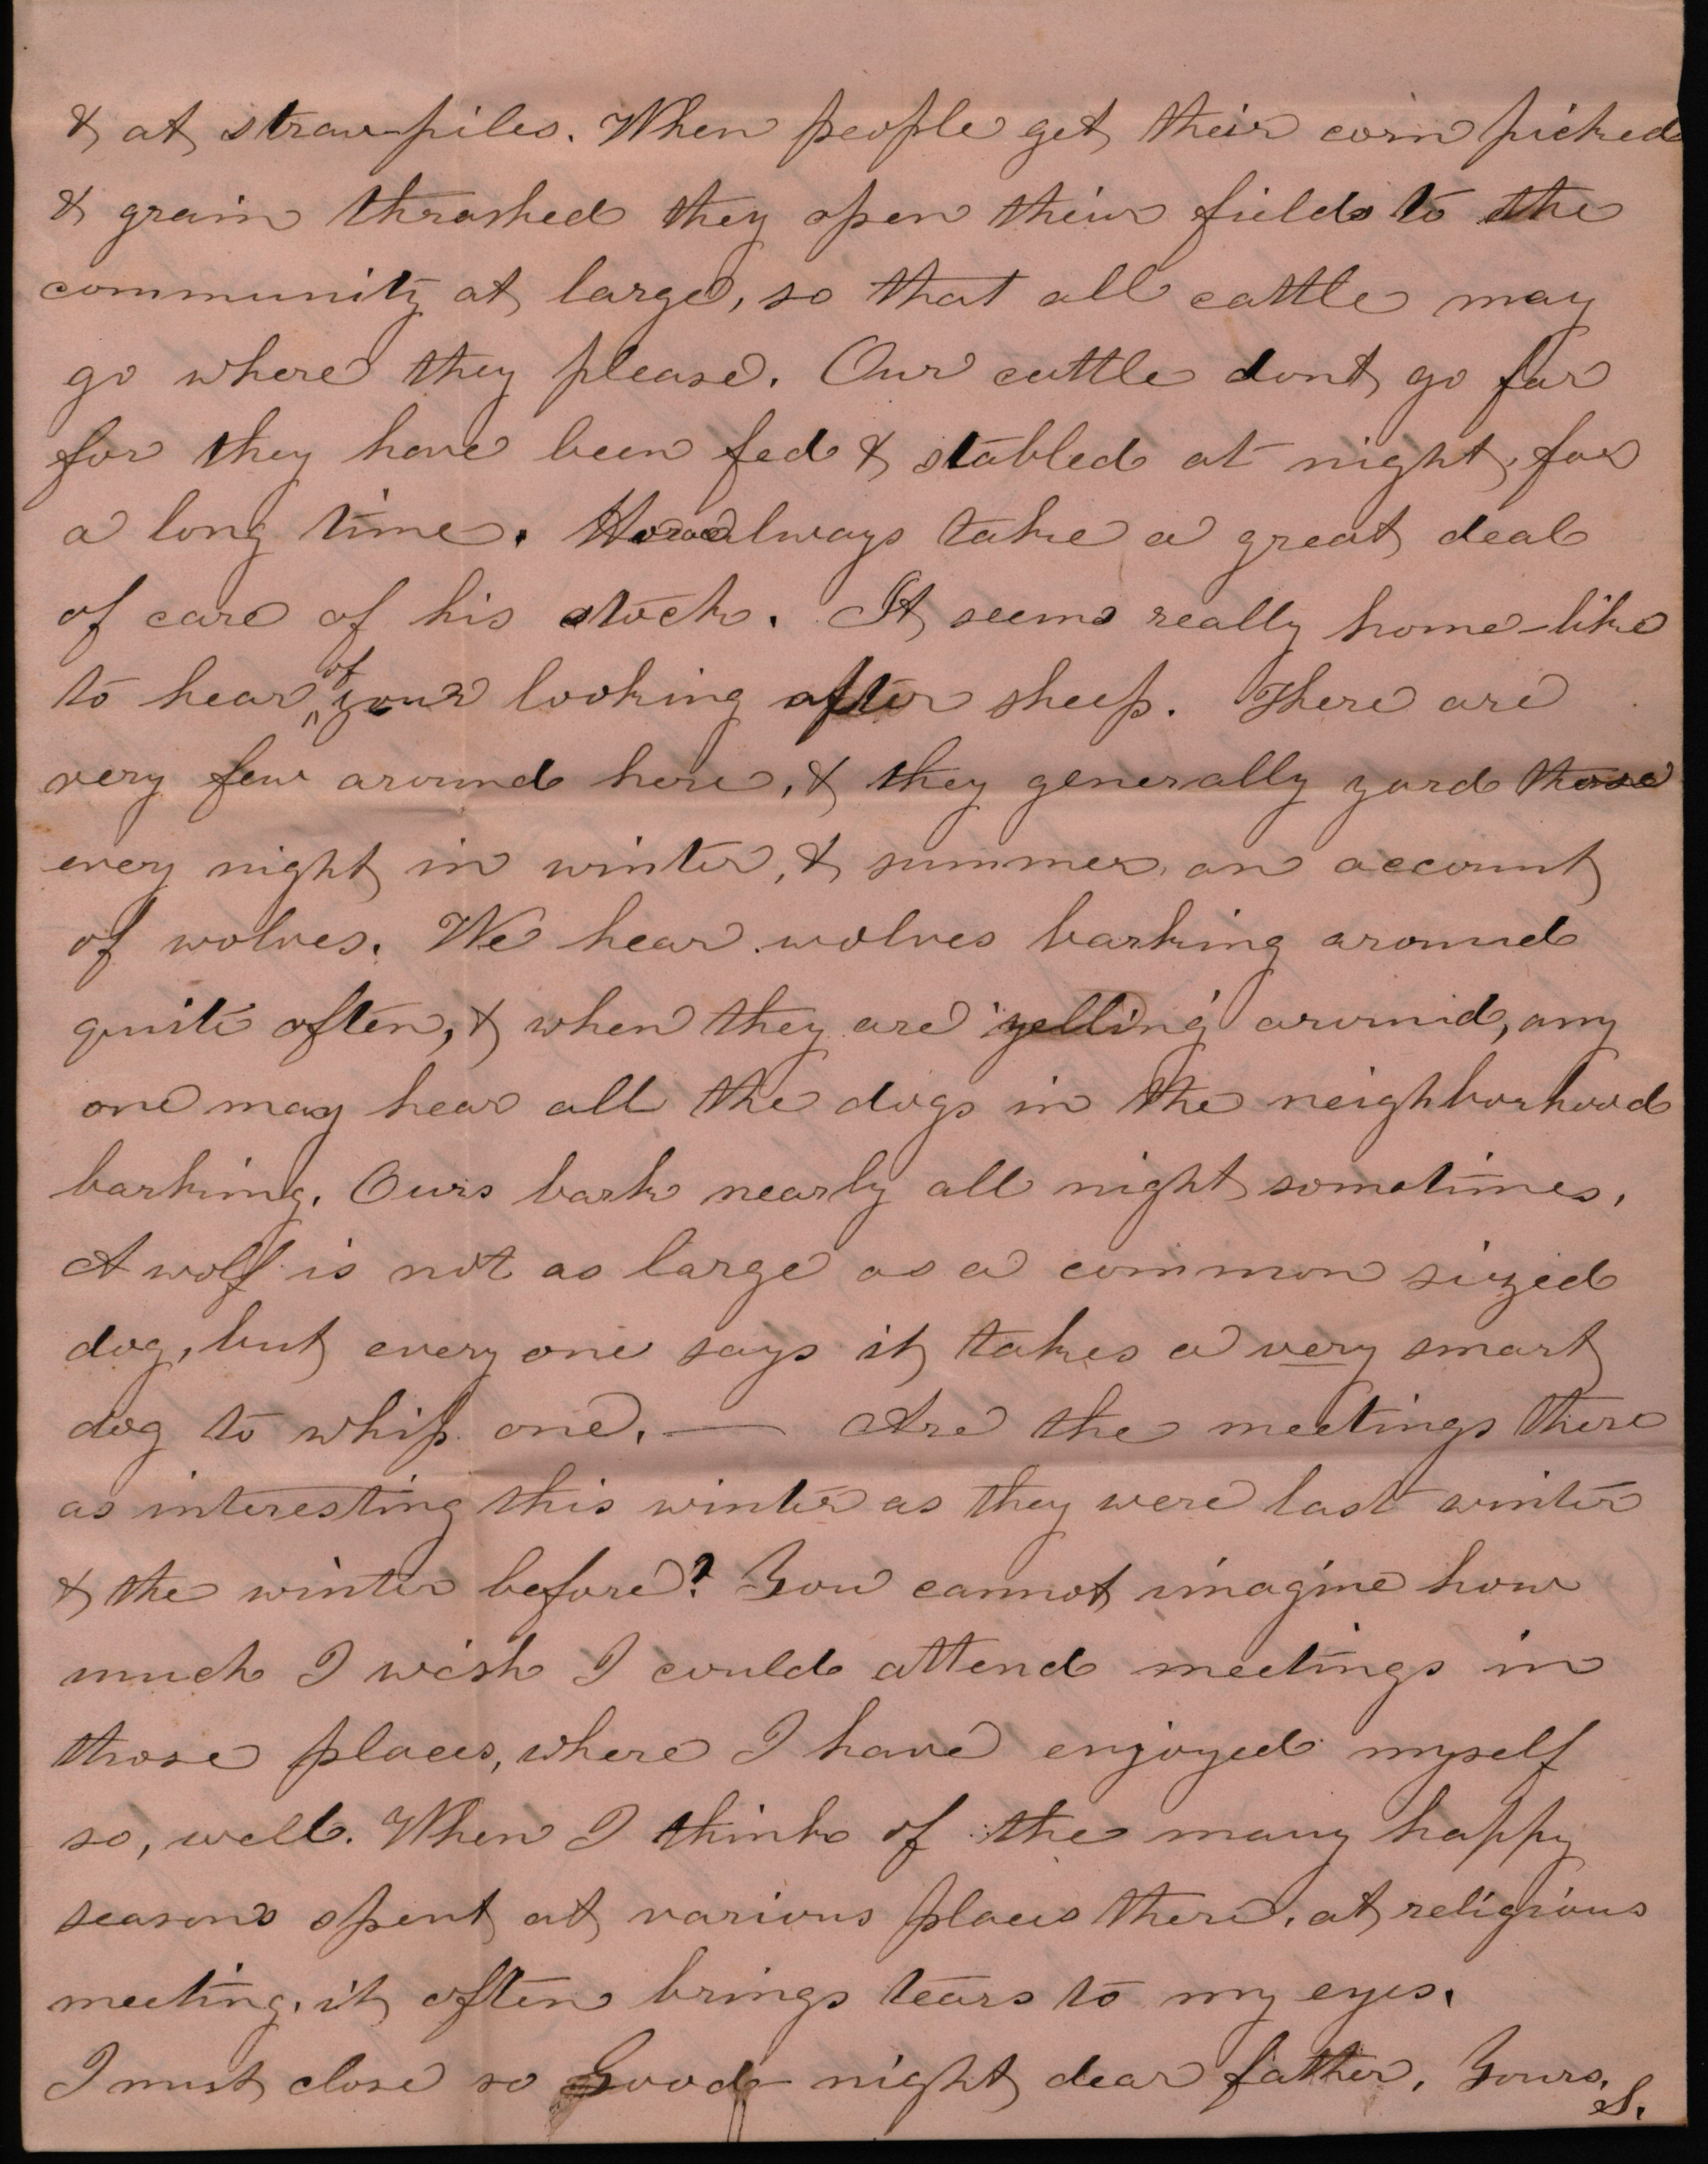 & at straw-piles. When people get their corn picked
& grain thrashed they open their fields to the
community at large, so that all cattle may
go where they please. Our cattle dont go far
for they have been fed & stabled at night, for
a long time. always take a great deal
of care of his stock. It seems really home-like
to hear of your looking after sheep. There are
very few around here, & they generally yard those
every night in winter, & summer, on account
of wolves. We hear wolves barking around
quite often, & when they are yelling around, any
one may hear all the dogs in the neighborhood
barking. Ours bark nearly all night sometimes.
A wolf is not as large as a common sized
dog, but every one says it takes a very smart
dog to whip one. — Are the meetings there
as interesting this winter as they were last winter
& the winter before? You cannot imagine how
much I wish I could attend meetings in
those places, where I have enjoyed myself
so, well. When I think of the many happy
seasons spent at various places there, at religious
meeting, it often brings tears to my eyes.
I must close so Good-night dear father. Yours,
S.